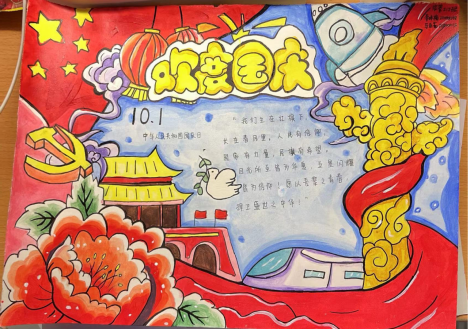 欢度国庆
10.1
中华人民共和国
"我们生在红旗下,
长在春风里,人民有信仰,
国家有力量,民族有希望。
目光所至皆为华夏,五星闪耀
皆为信仰!愿以吾辈之青春
捍卫盛世之中华!"